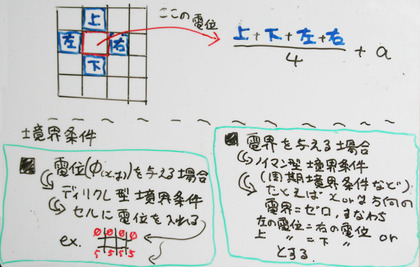 上
左
右
下
ここの電位
上+下+左+右
4
+ a
境界条件
電位(φ(x,y))を与える場合
ディリクレ型境界条件
セルに電位を入れる
ex.
0 0 0 0
5 5 5 5
電界を与える場合
ノイマン型境界条件
(周期境界条件など)
たとえば x or y 方向の
電界=ゼロ、すなわち
左の電位=右の電位 or
上 〃 = 下 〃
とする。